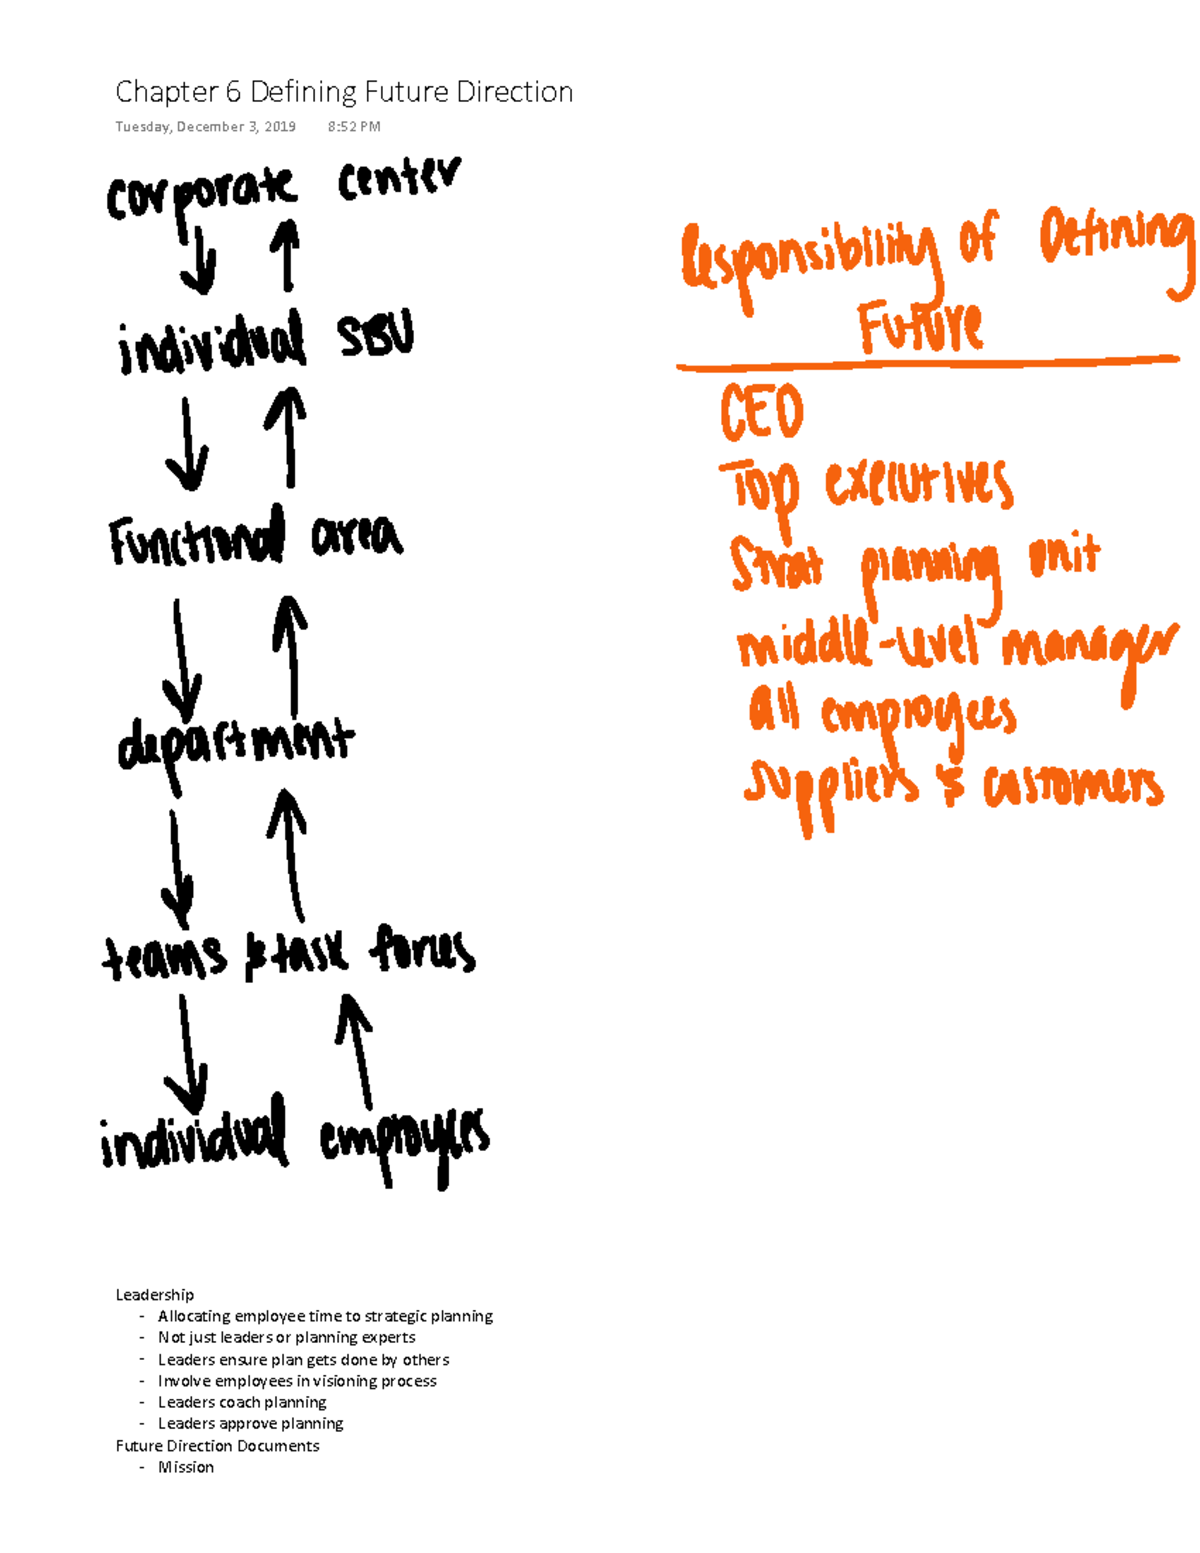 Chapter 6 Defining Future Direction
Tuesday, December 3, 2019 8:52 PM
corporate center
individual SBU
Functional area
department
teams & task forces
individual employees
Responsibility of Defining
Future
CEO
Top executives
Strat planning unit
middle-level manager
all employees
suppliers & customers
Leadership
- Allocating employee time to strategic planning
- Not just leaders or planning experts
- Leaders ensure plan gets done by others
- Involve employees in visioning process
- Leaders coach planning
- Leaders approve planning
Future Direction Documents
- Mission